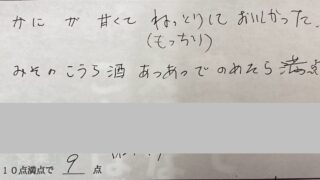 かにが甘くてねっとりしておいしかった。
(もっちり)
みそのこうら酒あつあつでのめたら満点
10点満点で 9 点